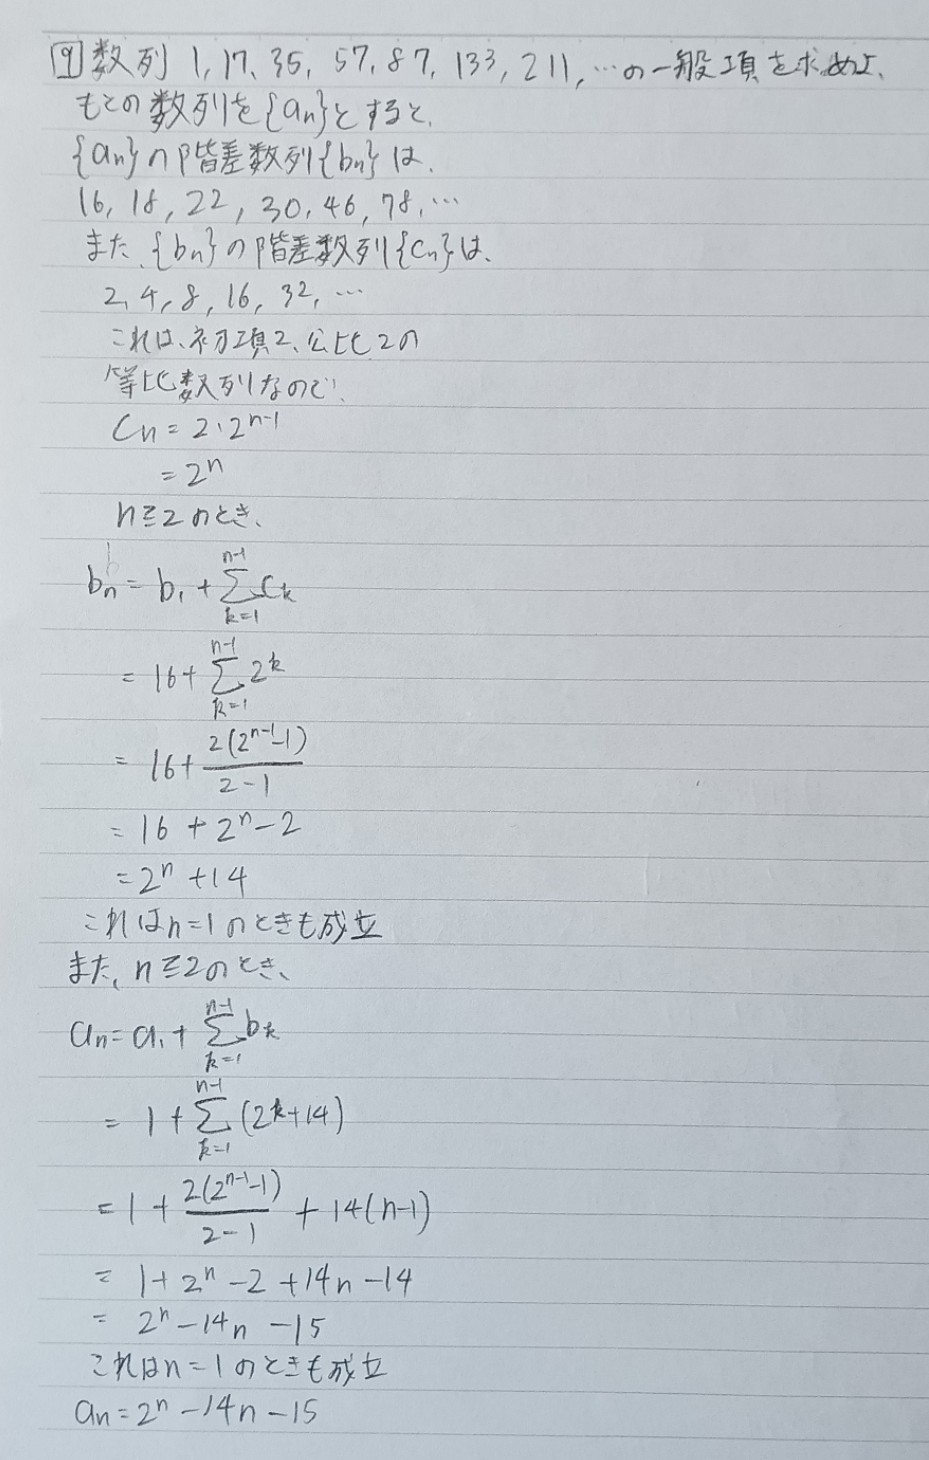 9 数列 1, 17, 35, 57, 87, 133, 211, …の一般項を求めよ、
もとの数列を{an}とすると、
{an}の階差数列{bn}は、
16, 18, 22, 30, 46, 78, …
また、{bn}の階差数列{cn}は、
2, 4, 8, 16, 32, …
これは、初項2、公比2の
等比数列なので、
Cn = 2・2^(n-1)
= 2^n
n≧2のとき、
bn = b1 + Σ[k=1, n-1] Ck
= 16 + Σ[k=1, n-1] 2^k
= 16 + 2(2^(n-1) - 1)/(2 - 1)
= 16 + 2^n - 2
= 2^n + 14
これはn=1のときも成立
また、n≧2のとき、
an = a1 + Σ[k=1, n-1] bk
= 1 + Σ[k=1, n-1] (2^k + 14)
= 1 + 2(2^(n-1) - 1)/(2 - 1) + 14(n-1)
= 1 + 2^n - 2 + 14n - 14
= 2^n - 14n - 15
これはn=1のときも成立
an = 2^n - 14n - 15